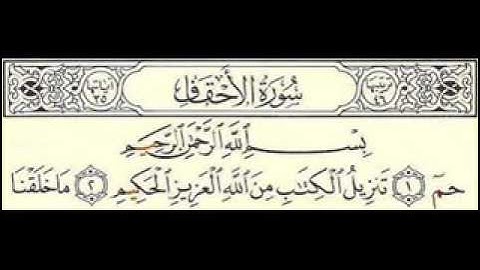 ترتيبها ٤٦ سُورَةُ الأَحْقَافِ آياتها ٣٥
بِسْمِ ٱللَّهِ ٱلرَّحْمَٰنِ ٱلرَّحِيمِ
حمٓ ۝١ تَنزِيلُ ٱلْكِتَٰبِ مِنَ ٱللَّهِ ٱلْعَزِيزِ ٱلْحَكِيمِ ۝٢ مَا خَلَقْنَا